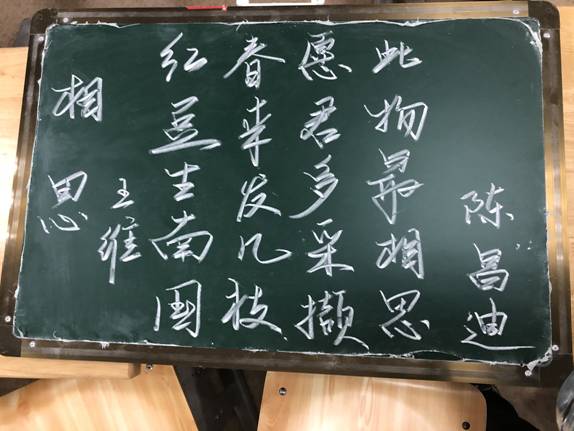 相思
王维
红豆生南国
春来发几枝
愿君多采撷
此物最相思
陈昌迪